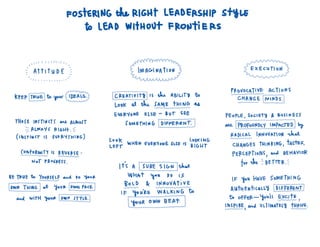 FOSTERING the RIGHT LEADERSHIP STYLE
to LEAD WITHOUT FRONTIERS
ATTITUDE
KEEP TRUE to your IDEALS
THOSE INSTINCTS are ALMOST
ALWAYS RIGHT.
(INSTINCT IS EVERYTHING)
CONFORMITY IS REVERSE.
NOT PROGRESS.
BE TRUE to YOURSELF and do your
OWN THING at your OWN PACE
and with your OWN STYLE
IMAGINATION
CREATIVITY is the ABILITY to
LOOK at the SAME THING as
EVERYONE ELSE - BUT SEE
SOMETHING DIFFERENT
LOOK LEFT WHEN EVERYONE ELSE IS LOOKING RIGHT
IT'S A SURE SIGN that
WHAT you DO IS
BOLD & INNOVATIVE
IF YOU'RE WALKING to
YOUR OWN BEAT
EXECUTION
PROVOCATIVE ACTIONS
CHANGE MINDS
PEOPLE, SOCIETY & BUSINESS
are PROFOUNDLY IMPACTED by
RADICAL INNOVATION that
CHANGES THINKING, TASTES,
PERCEPTIONS, and BEHAVIOR
for the BETTER.
IF YOU HAVE SOMETHING
AUTHENTICALLY DIFFERENT
to OFFER - YOU'LL EXCITE,
INSPIRE, and ULTIMATELY THRIVE.